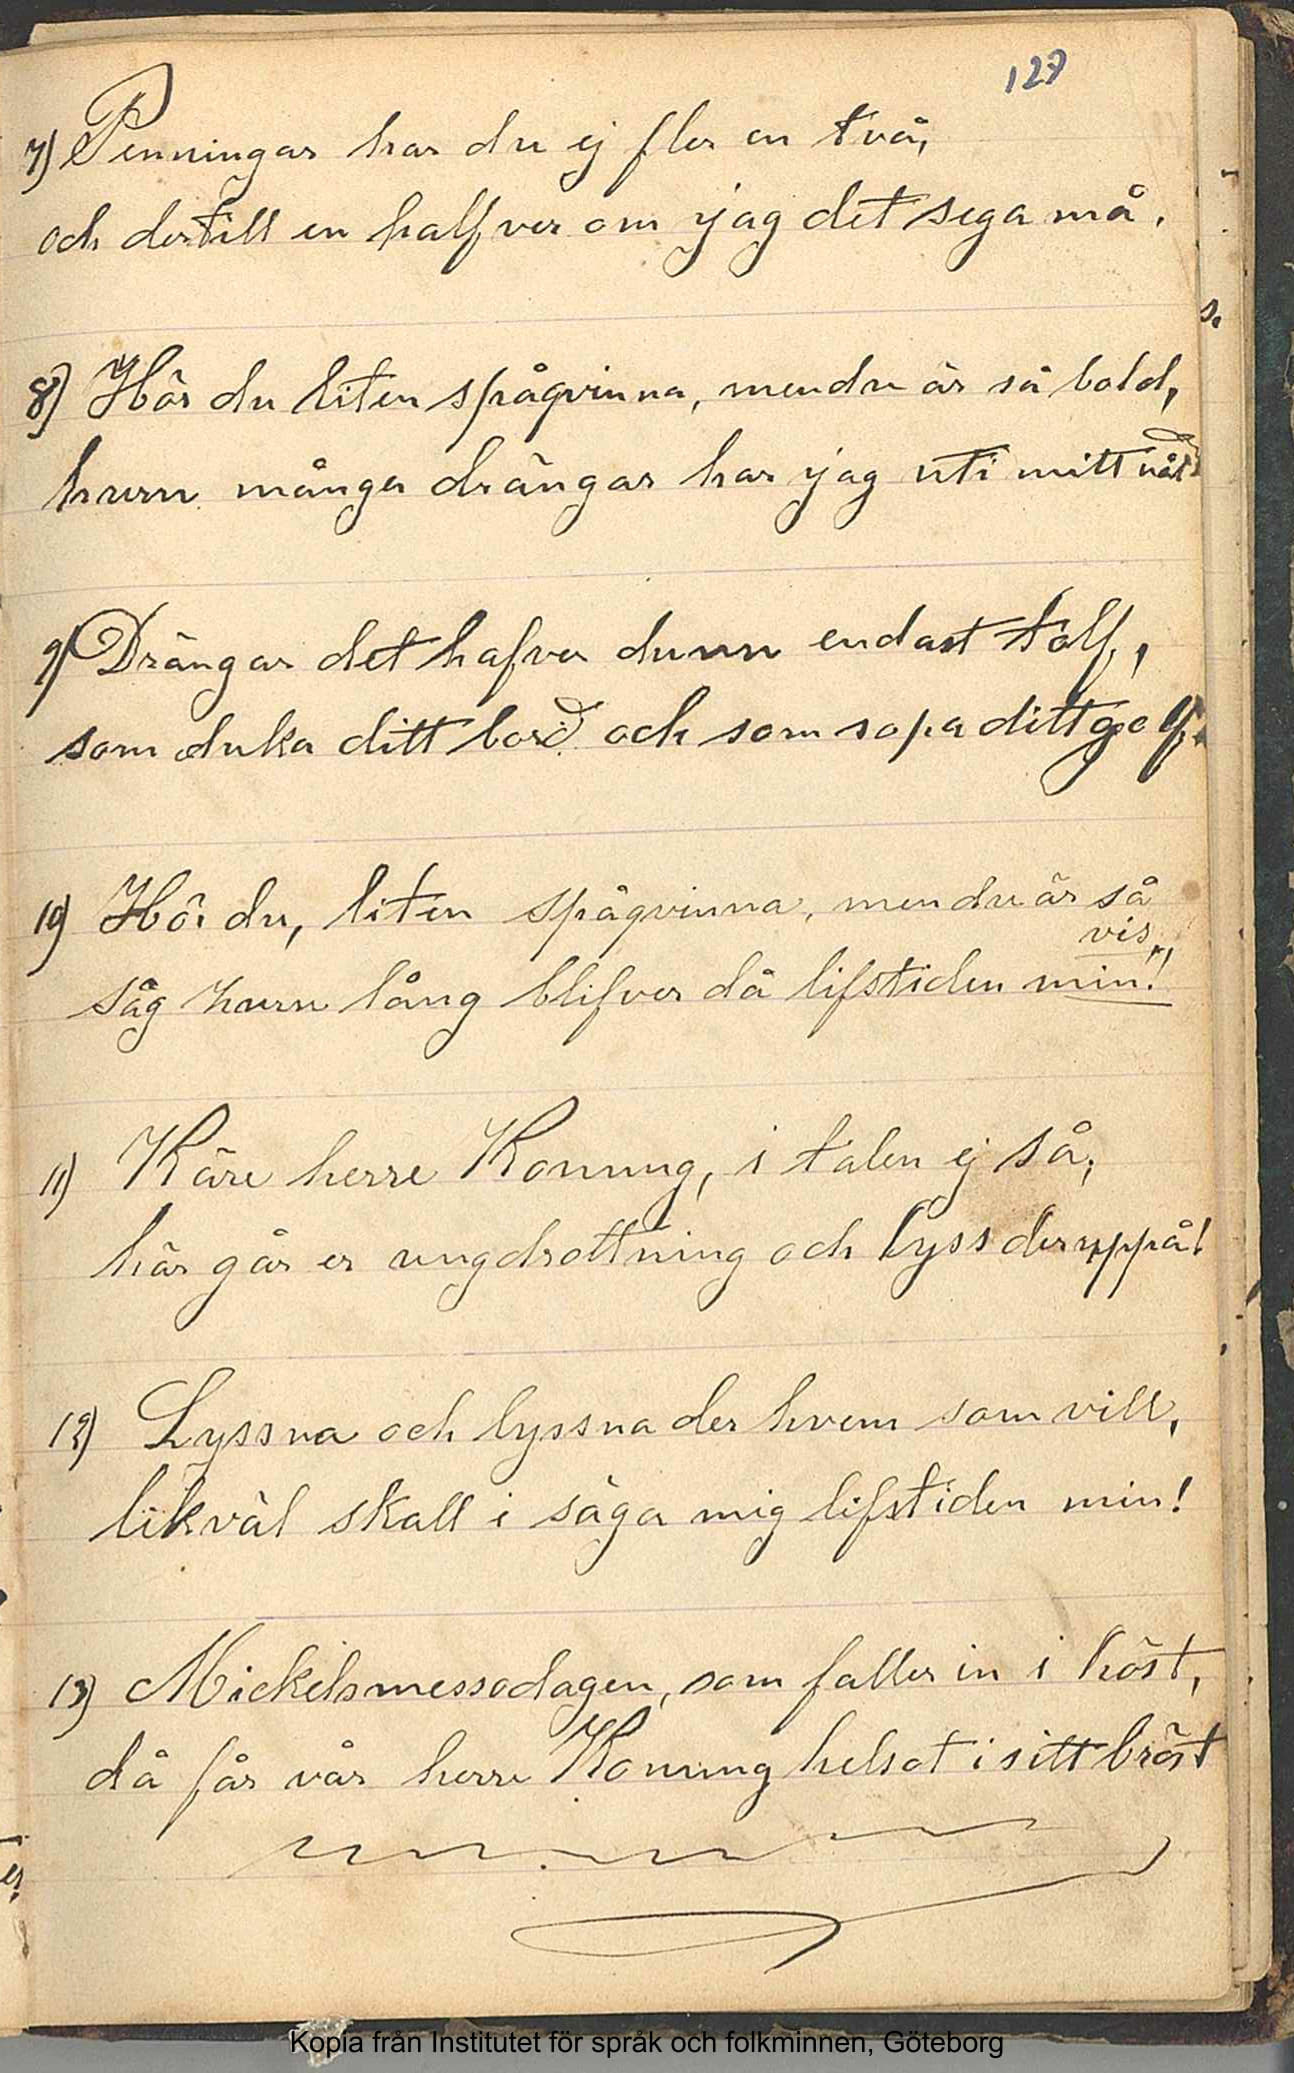 127
7) Penningar har du ej fler en två,
och dertill en half ver om jag det sega må.
8) Hör du liten spåqvinna, men du är så bold,
huru många drängar har jag uti mitt våld
9) Drängar det hafver du nu endast tolf,
som duka ditt bord och som sopa ditt golf.
10) Hör du, liten spåqvinna, men du är så
vis,
säg huru lång blifver då lifstiden min!
11) Käre herre Konung, i talen ej så,
här går er ungdrottning och lyss deruppå!
12) Lyssna och lyssna der hvem som vill,
likväl skall i säga mig lifstiden min!
13) Mickelsmessodagen, som faller in i höst,
då får vår herre Konung helsot i sitt bröst
Kopia från Institutet för språk och folkminnen, Göteborg